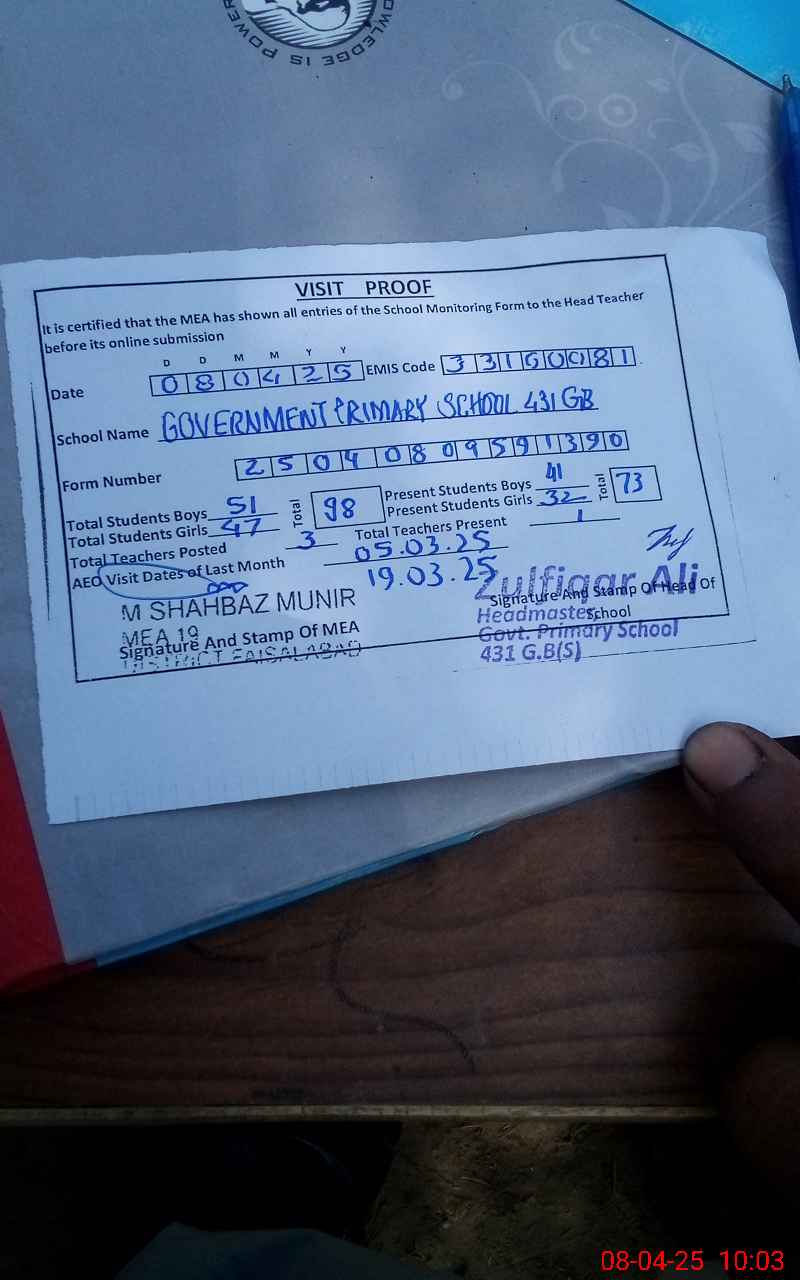 KNOWLEDGE IS POWER
VISIT PROOF
It is certified that the MEA has shown all entries of the School Monitoring Form to the Head Teacher
before its online submission
D D M M Y Y
Date 0 8 0 4 2 5 EMIS Code 3 3 1 5 0 0 8 1
School Name GOVERNMENT PRIMARY SCHOOL 431 GB
Form Number 2 5 0 4 0 8 0 9 5 9 1 3 9 0
Total Students Boys 51 Total 98 Present Students Boys 41 Total 73
Total Students Girls 47 Present Students Girls 32
Total Teachers Posted 3 Total Teachers Present 1
AEO Visit Dates of Last Month 05.03.25
19.03.25
M SHAHBAZ MUNIR
MEA 19
Signature And Stamp Of MEA
DISTRICT FAISALABAD
Zulfiqar Ali
Signature And Stamp Of Head Of
School
Headmaster
Govt. Primary School
431 G.B(S)
08-04-25 10:03